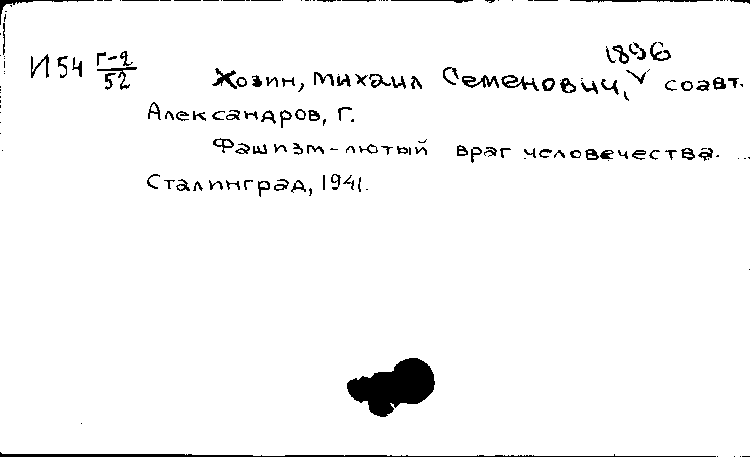 И54 Г-2/52
Хозин, Михаил Семенович, 1896 соавт.
Александров, Г.
Фашизм - лютый враг человечества. ...
Сталинград, 1941.